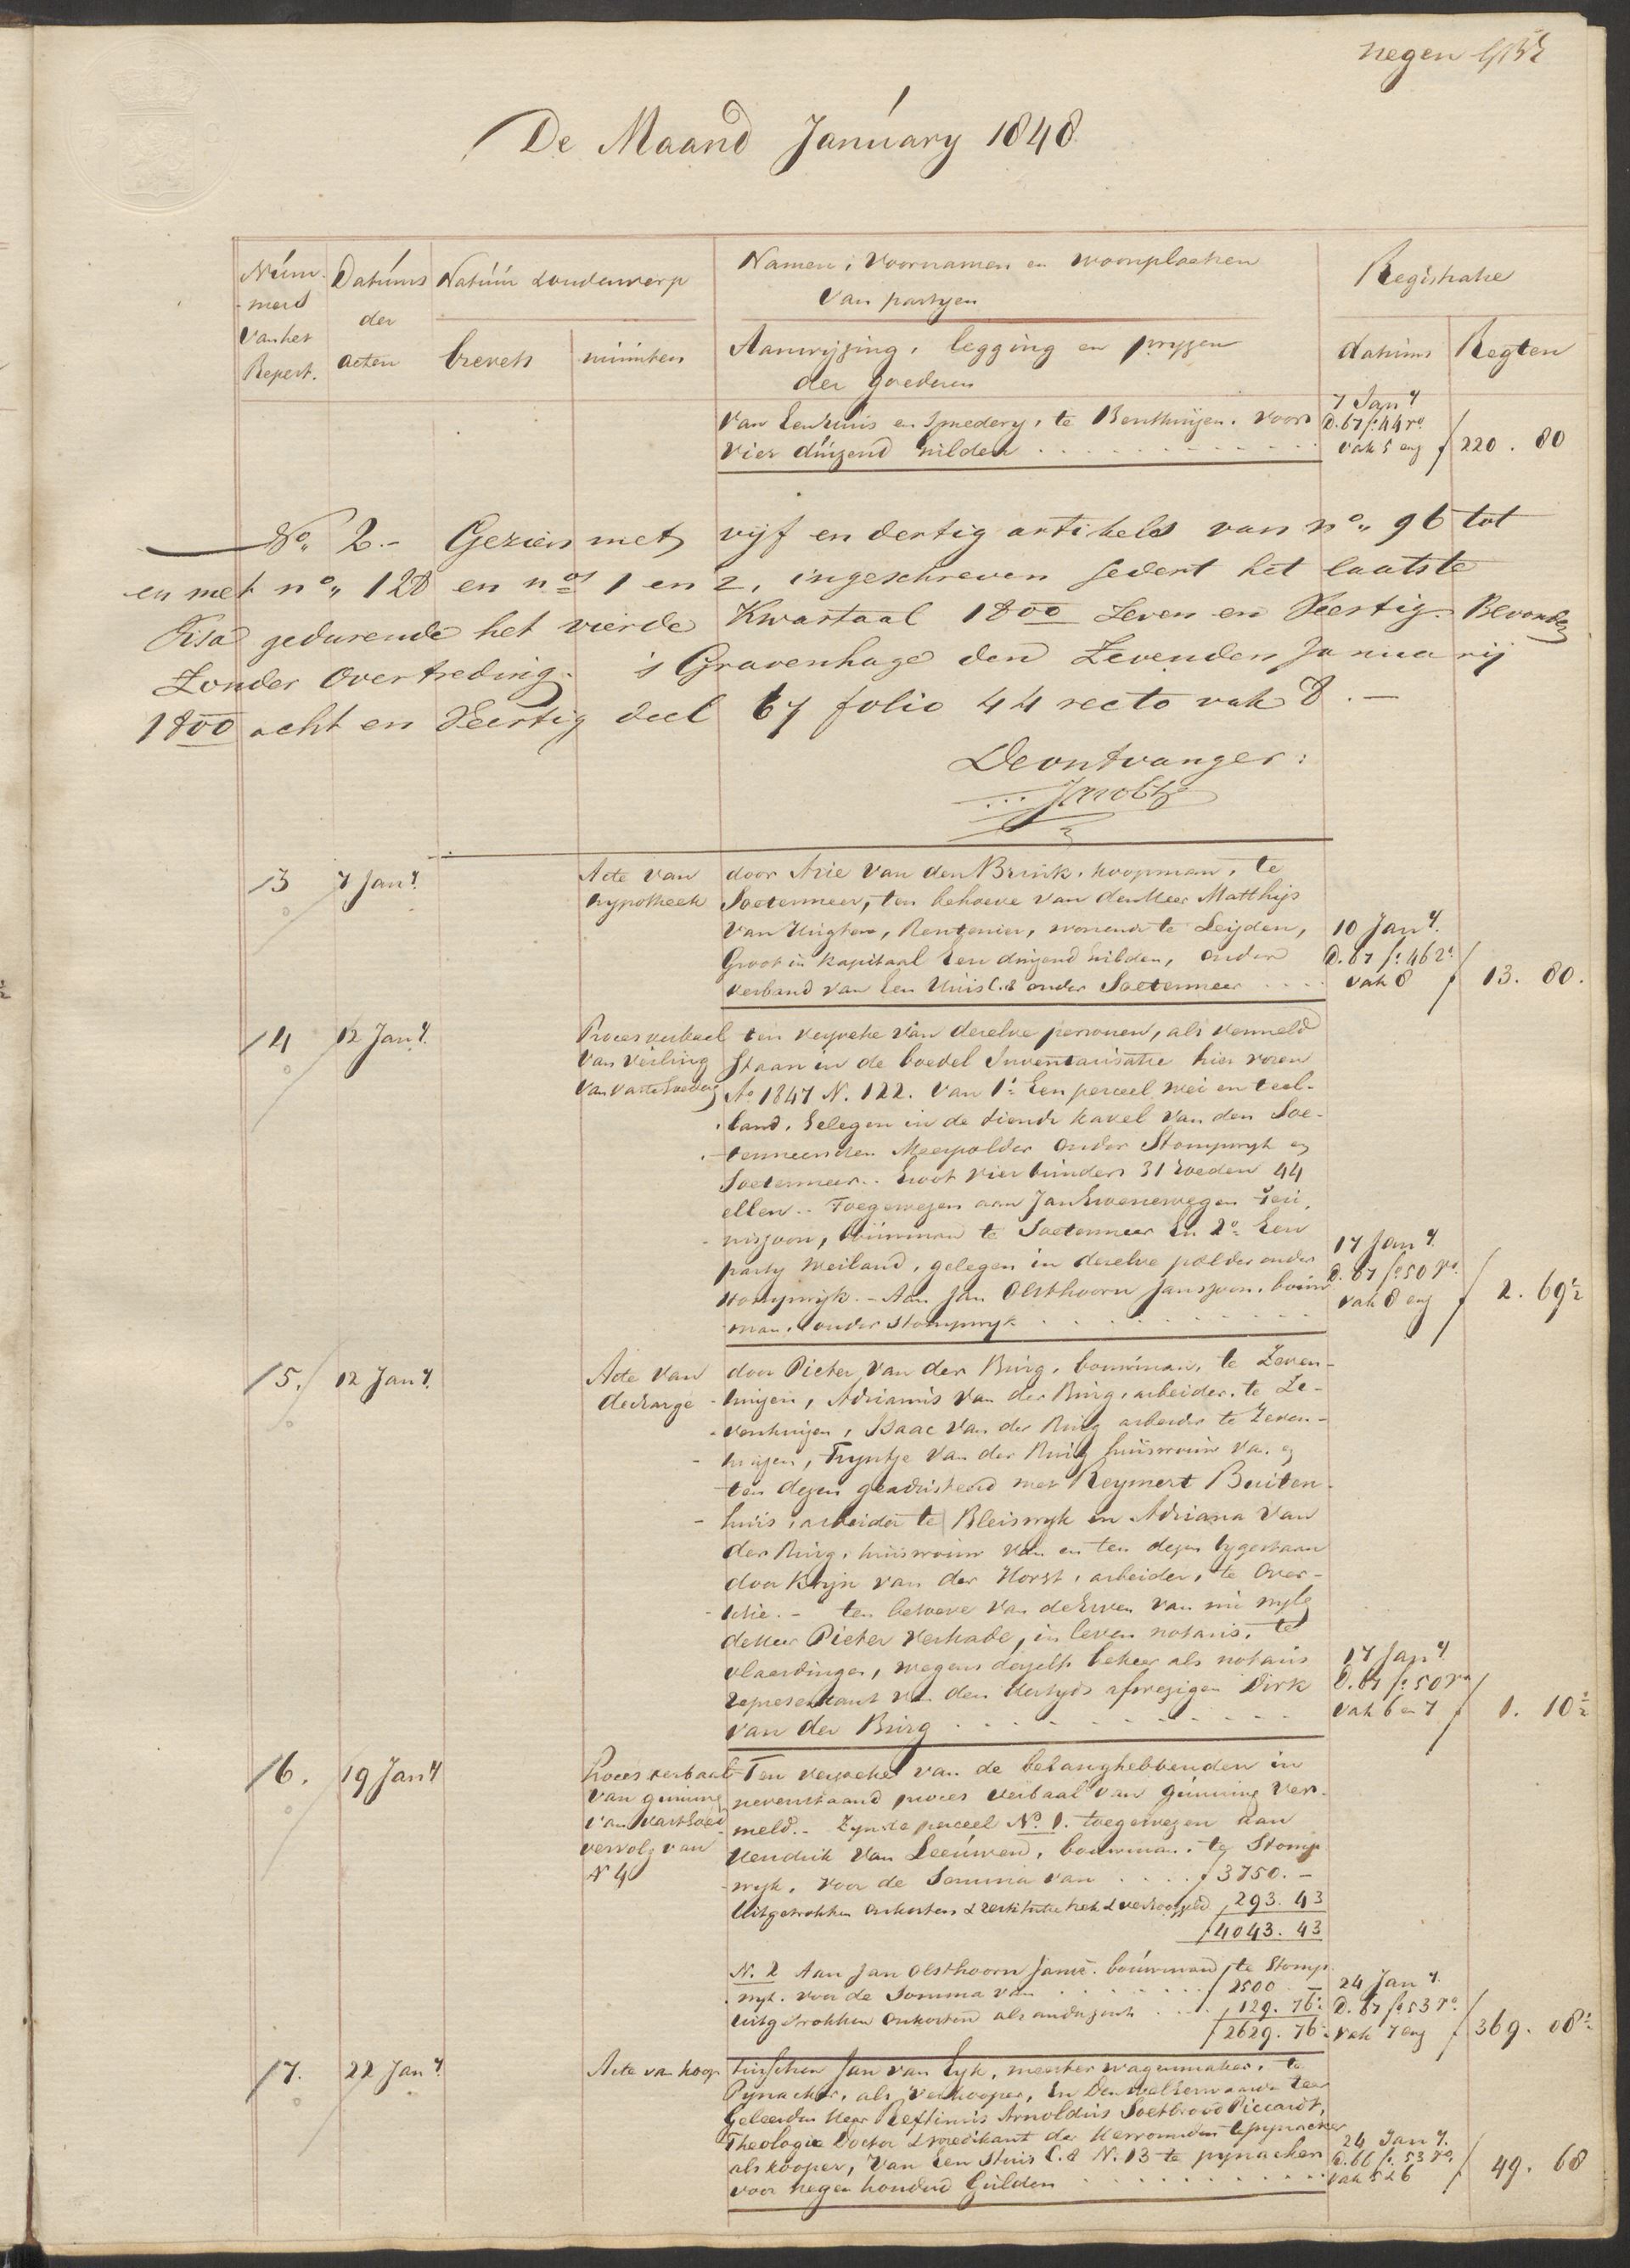 negen
De Maand January 1848
Num-
mers
van het
Repert.
Datums
der
acten
Natuur & onderwerp
brevets
minuten
Namen, Voornamen en woonplaatsen
van partyen
Aanwyzing, legging en pryzen
der goederen
Registratie
datums
Regten
van een huis en smedery, te Benthuizen, voor
vier duizend gulden
7 Jany
D. 67 fo 44 ro
vak 5 en
f 220. 80
No. 2.- Gezien met vijf en dertig artikels van no. 96 tot
en met no. 128 en nos 1 en 2, ingeschreven sedert het laatste
Visa gedurende het vierde Kwartaal 1800 Zeven en Veertig. Bevonden
Zonder Overtreding. 's Gravenhage den Zevenden Januarij
1800 acht en Veertig deel 67 folio 44 recto vak 8.-
De ontvanger:
3
7 Jany
Acte van
hypotheek
door Arie van den Brink, koopman, te
Soetermeer, ten behoeve van den Heer Matthijs
van , Rentenier, wonende te Leijden,
Groot in kapitaal een duizend gulden, onder
verband van een Huis C.A onder Soetermeer
10 Jany
D. 67 fo 46
vak 8
f 13. 80.
4
12 Jany
Proces verbaal
van veiling
van vaste goederen
ten verzoeke van dezelve personen, als vermeld
staan in de boedel Inventarisatie hier voren
Ao 1847 N. 122. van 1o Een perceel wei en teel-
land, gelegen in de tiende kavel van den Soe-
termeerschen Meerpolder onder Stompwyk en
Soetermeer.. Groot vier bunders 31 roeden 44
ellen.. Toegewezen aan Jan Groenewegen Teu-
niszoon, bouwman te Soetermeer En 2o Een
party Weiland, gelegen in dezelve polder onder
Stompwyk.- Aan Jan Olsthoorn Janszoon, bouw-
man, onder Stompwyk
17 Jany
D. 67 fo 50 ro
vak 8 en
f 2. 69½
5.
12 Jany
Acte van
decharge
door Pieter van der Burg, bouwman, te Zeven-
huizen, Adrianus van der Burg, arbeider, te Ze-
venhuizen, Isaac van der Burg arbeider te Zeven-
huizen, Tryntje van der Burg huisvrouw van en
ten dezen geadsisteerd met Reymert Buiten-
huis, arbeider te Bleiswyk en Adriana van
der Burg, huisvrouw van en ten dezen bygestaan
door Kryn van der Horst, arbeider, te Over-
schie.- ten behoeve van de Erven van nu wylen
de Heer Pieter Verkade, in leven notaris, te
vlaardingen, wegens deszelfs beheer als notaris
representant van den destyds afwezigen Dirk
van der Burg
17 Jany
D. 67 fo 50 ro
vak 6 en 7
f 1. 10½
6.
19 Jany
Proces verbaal
van gunning
van vastgoed
vervolg van
N 4
Ten verzoeke van de belanghebbenden in
nevenstaand proces verbaal van gunning ver-
meld.- Zynde perceel No. 1. toegewezen aan
Hendrik van Leeuwen, bouwman, te Stomp-
wyk, voor de Somma van f 3750.-
Uitgetrokken onkosten & 293. 43
f 4043. 43
N. 2 Aan Jan Olsthoorn Jansz. bouwman, te Stomp-
wyk. voor de Somma van f 2500 -
Uitgetrokken onkosten als 129. 76
f 2629. 76
24 Jany
D. 67 fo 53 ro
vak 7 en
f 369. 08
7.
22 Jany
Acte van koop
tusschen Jan van Eyk, meester wagenmaker, te
Pynacker, als verkooper, en Den weleerwaarde zeer
Geleerden Heer Arnoldus Soetbrood Piccardt,
Theologie Doctor & predikant der Hervormden te pynacker
als kooper, van een Huis C.A N. 13 te pynacker
voor negen honderd Gulden
24 Jany
D. 66 fo 53 ro
vak 5 & 6
f 49. 68